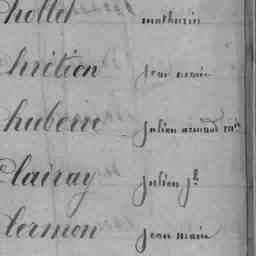 hollet mathurin
hrétien jean marie
huberie julien armand
lairay julien jh
lermon jean marie